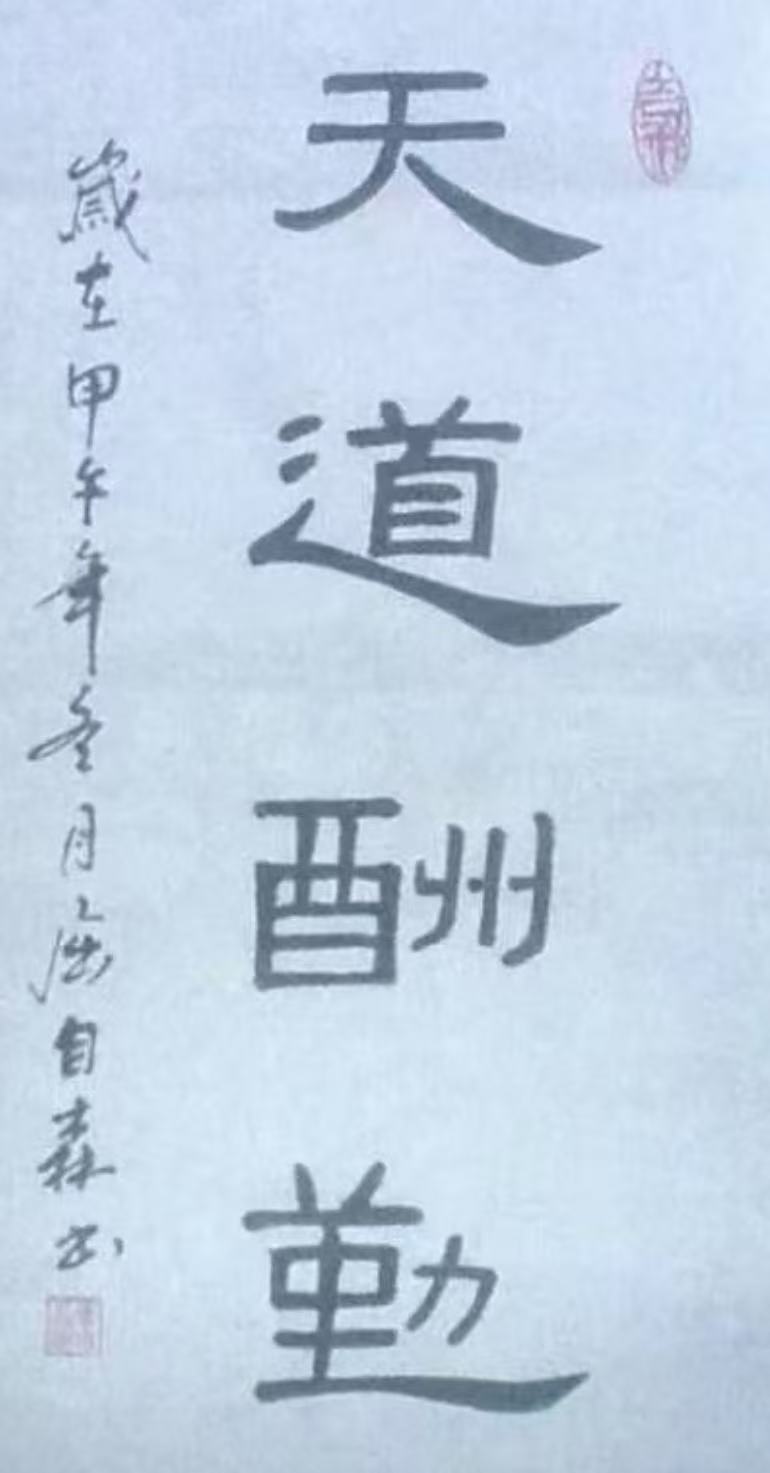 天道酬勤
歲在甲午年冬月屈自森书